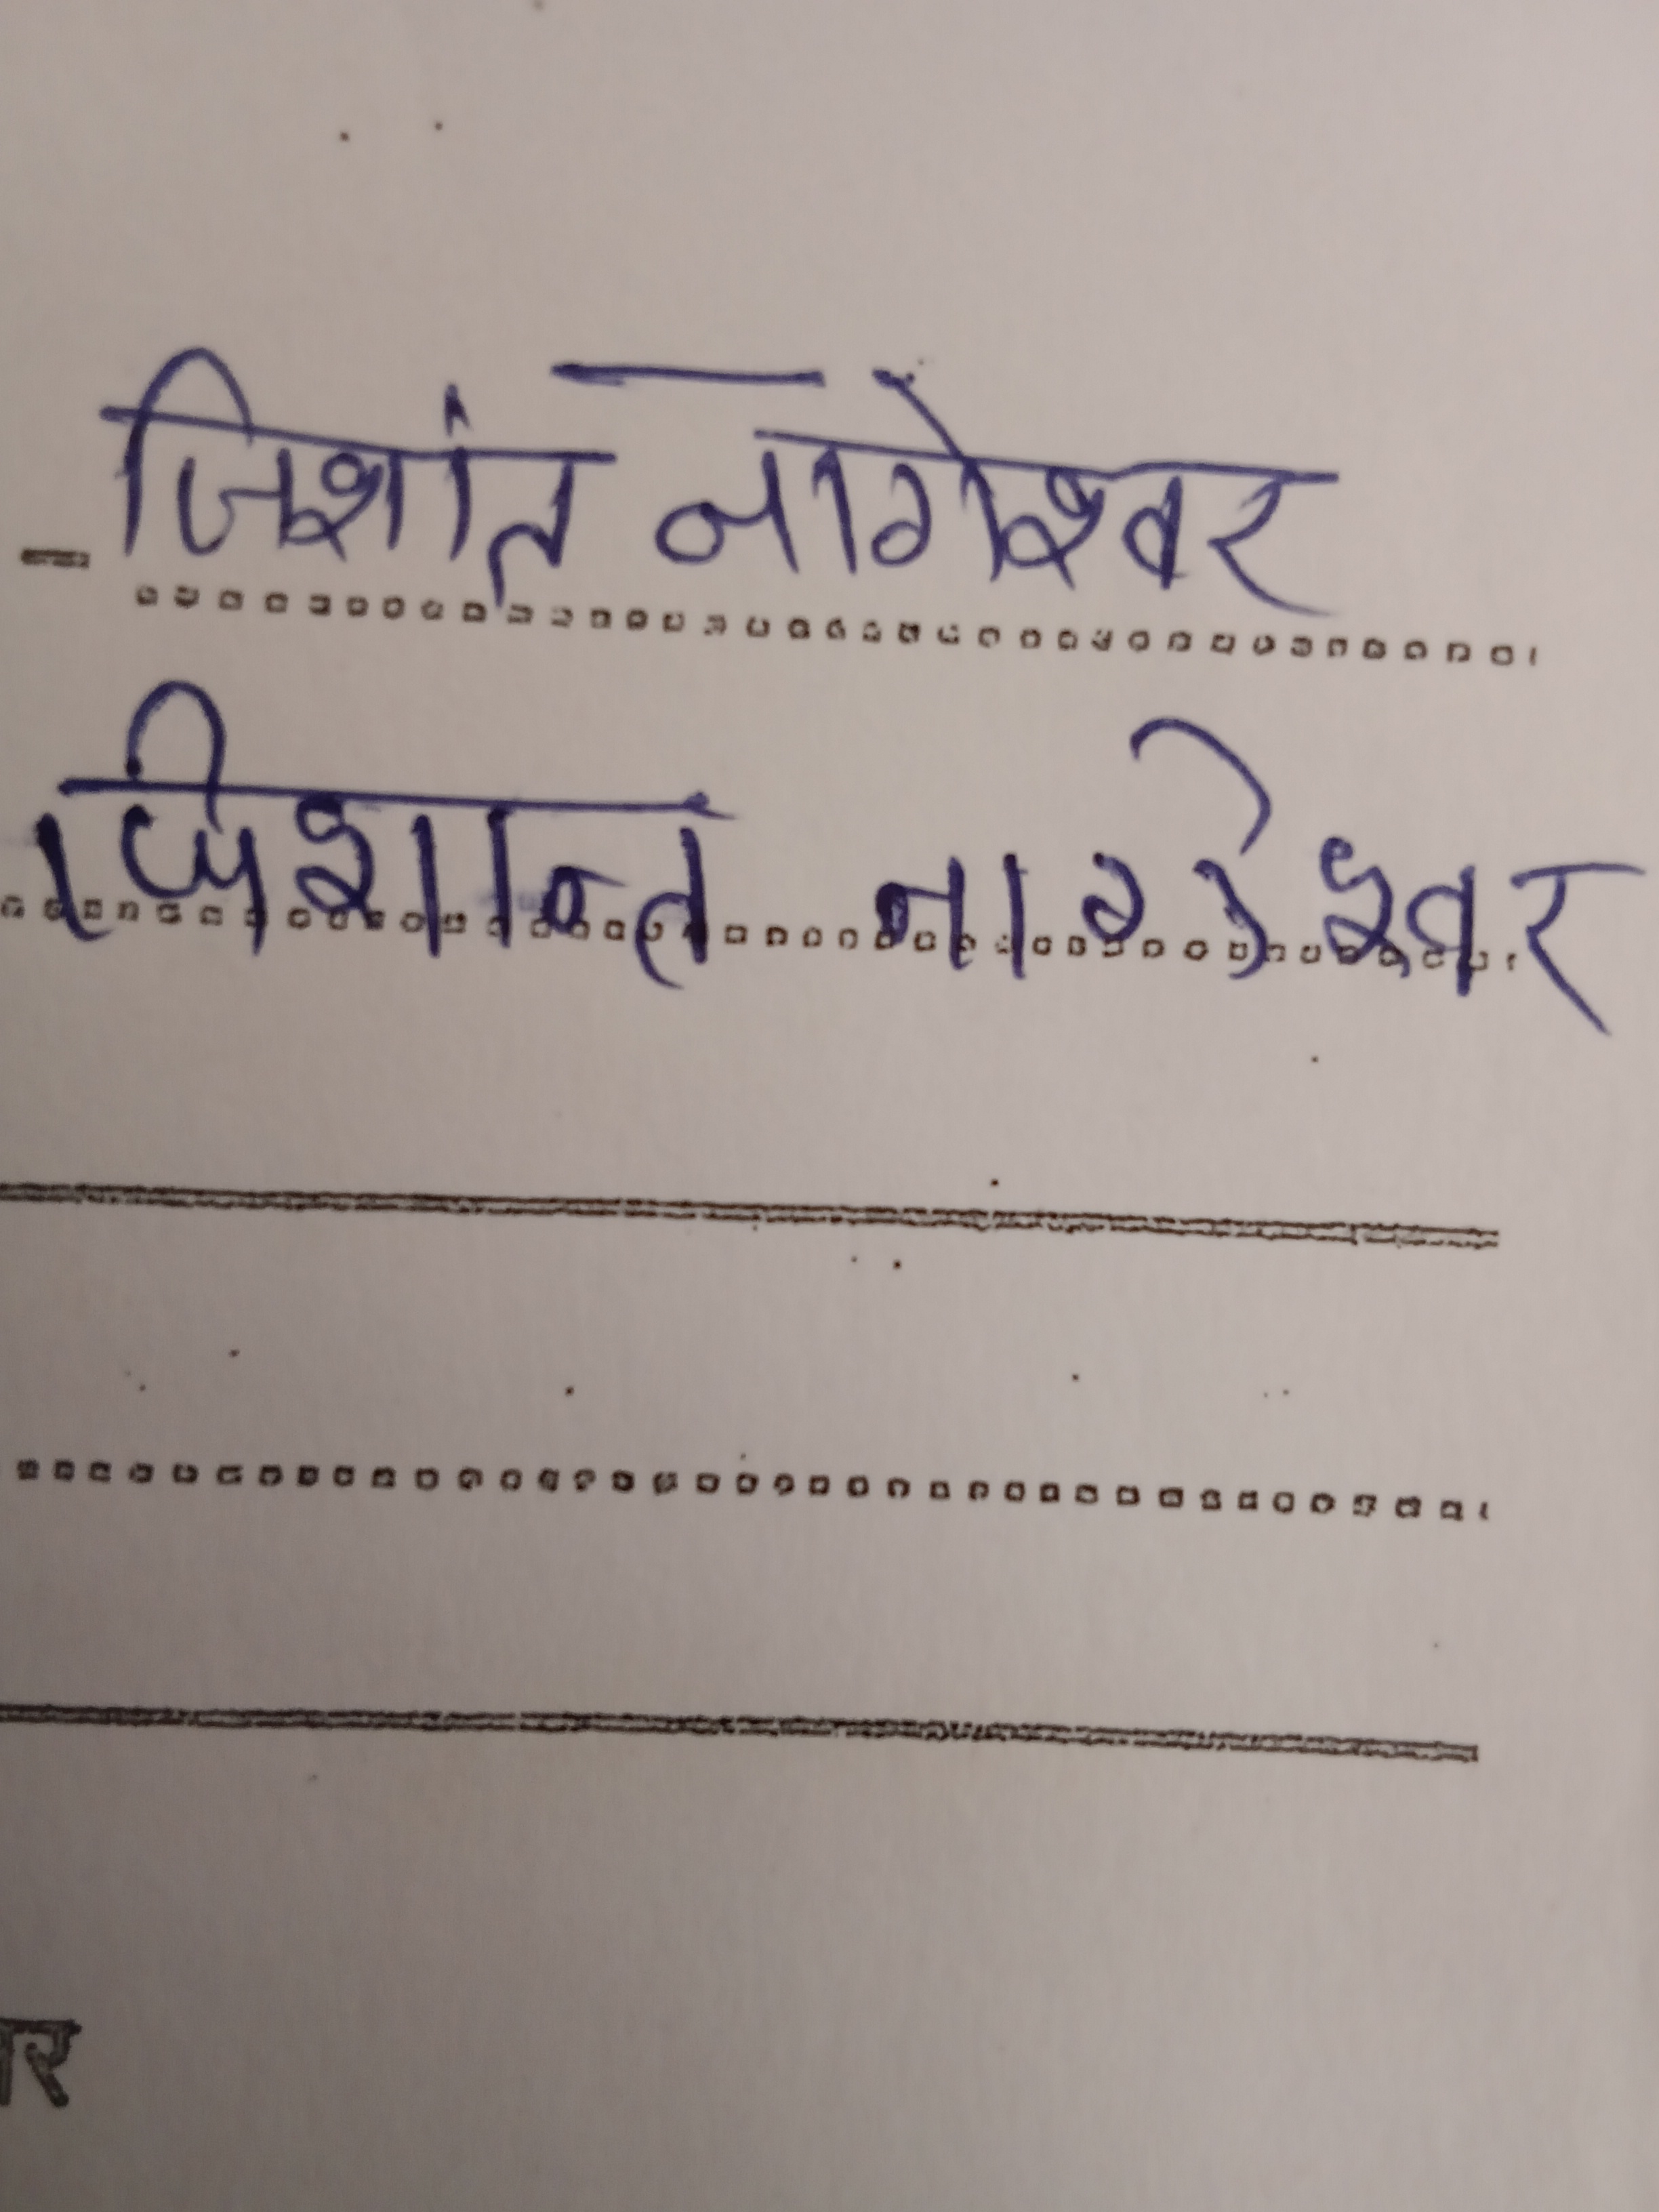 जिशांत नागेश्वर
जिशान्त नागेश्वर